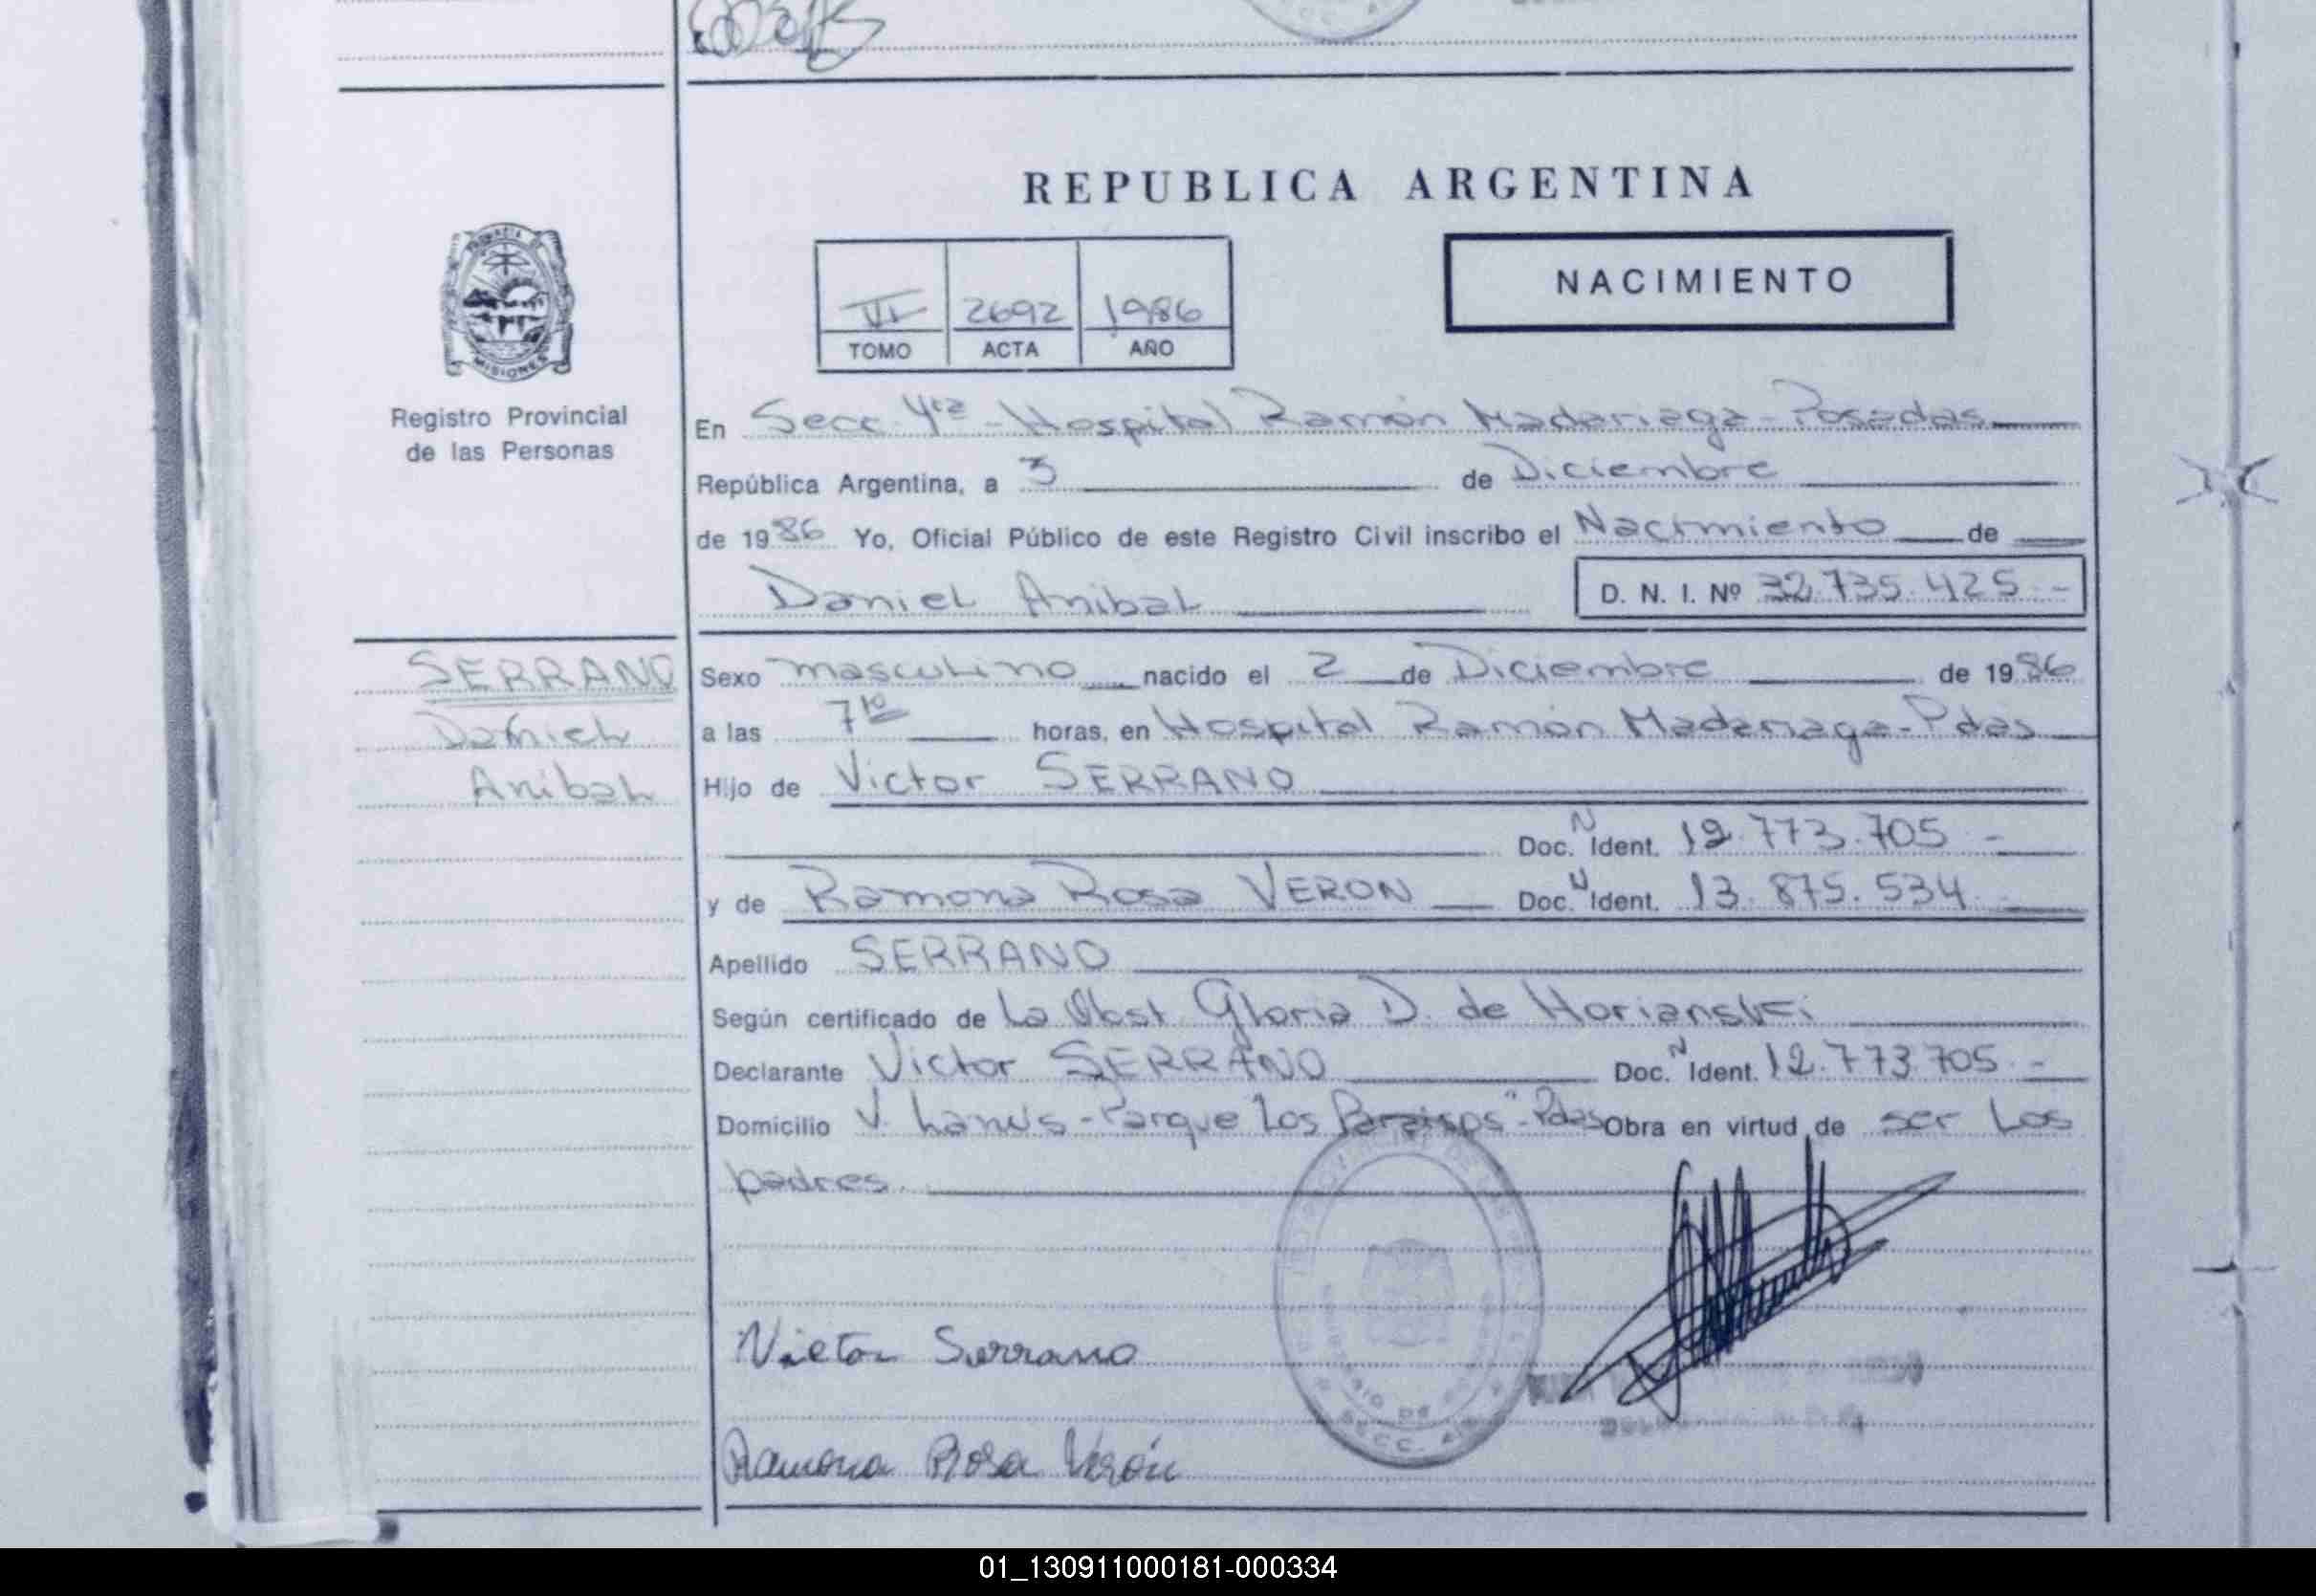 REPUBLICA ARGENTINA
NACIMIENTO
VI 2692 1986
TOMO ACTA AÑO
PROVINCIA DE
MISIONES
Registro Provincial
de las Personas
En Secc. 4ta - Hospital Ramón Madariaga - Posadas
República Argentina, a 3 de Diciembre
de 1986 Yo, Oficial Público de este Registro Civil inscribo el Nacimiento de
Daniel Anibal D. N. I. Nº 32.735.425 -
SERRANO
Daniel
Anibal
Sexo masculino nacido el 2 de Diciembre de 1986
a las 7 10 horas, en Hospital Ramón Madariaga - Pdas
Hijo de Victor SERRANO
Doc. N Ident. 12.773.705 -
y de Ramona Rosa VERON Doc. N Ident. 13.875.534
Apellido SERRANO
Según certificado de La Obst Gloria D. de Horianski
Declarante Victor SERRANO Doc. N Ident. 12.773.705 -
Domicilio V. Lanús - Parque Los Paraisos" - Pdas Obra en virtud de ser los
padres.
Victor Serrano
Ramona Rosa Verón
SECC. 4
01_130911000181-000334